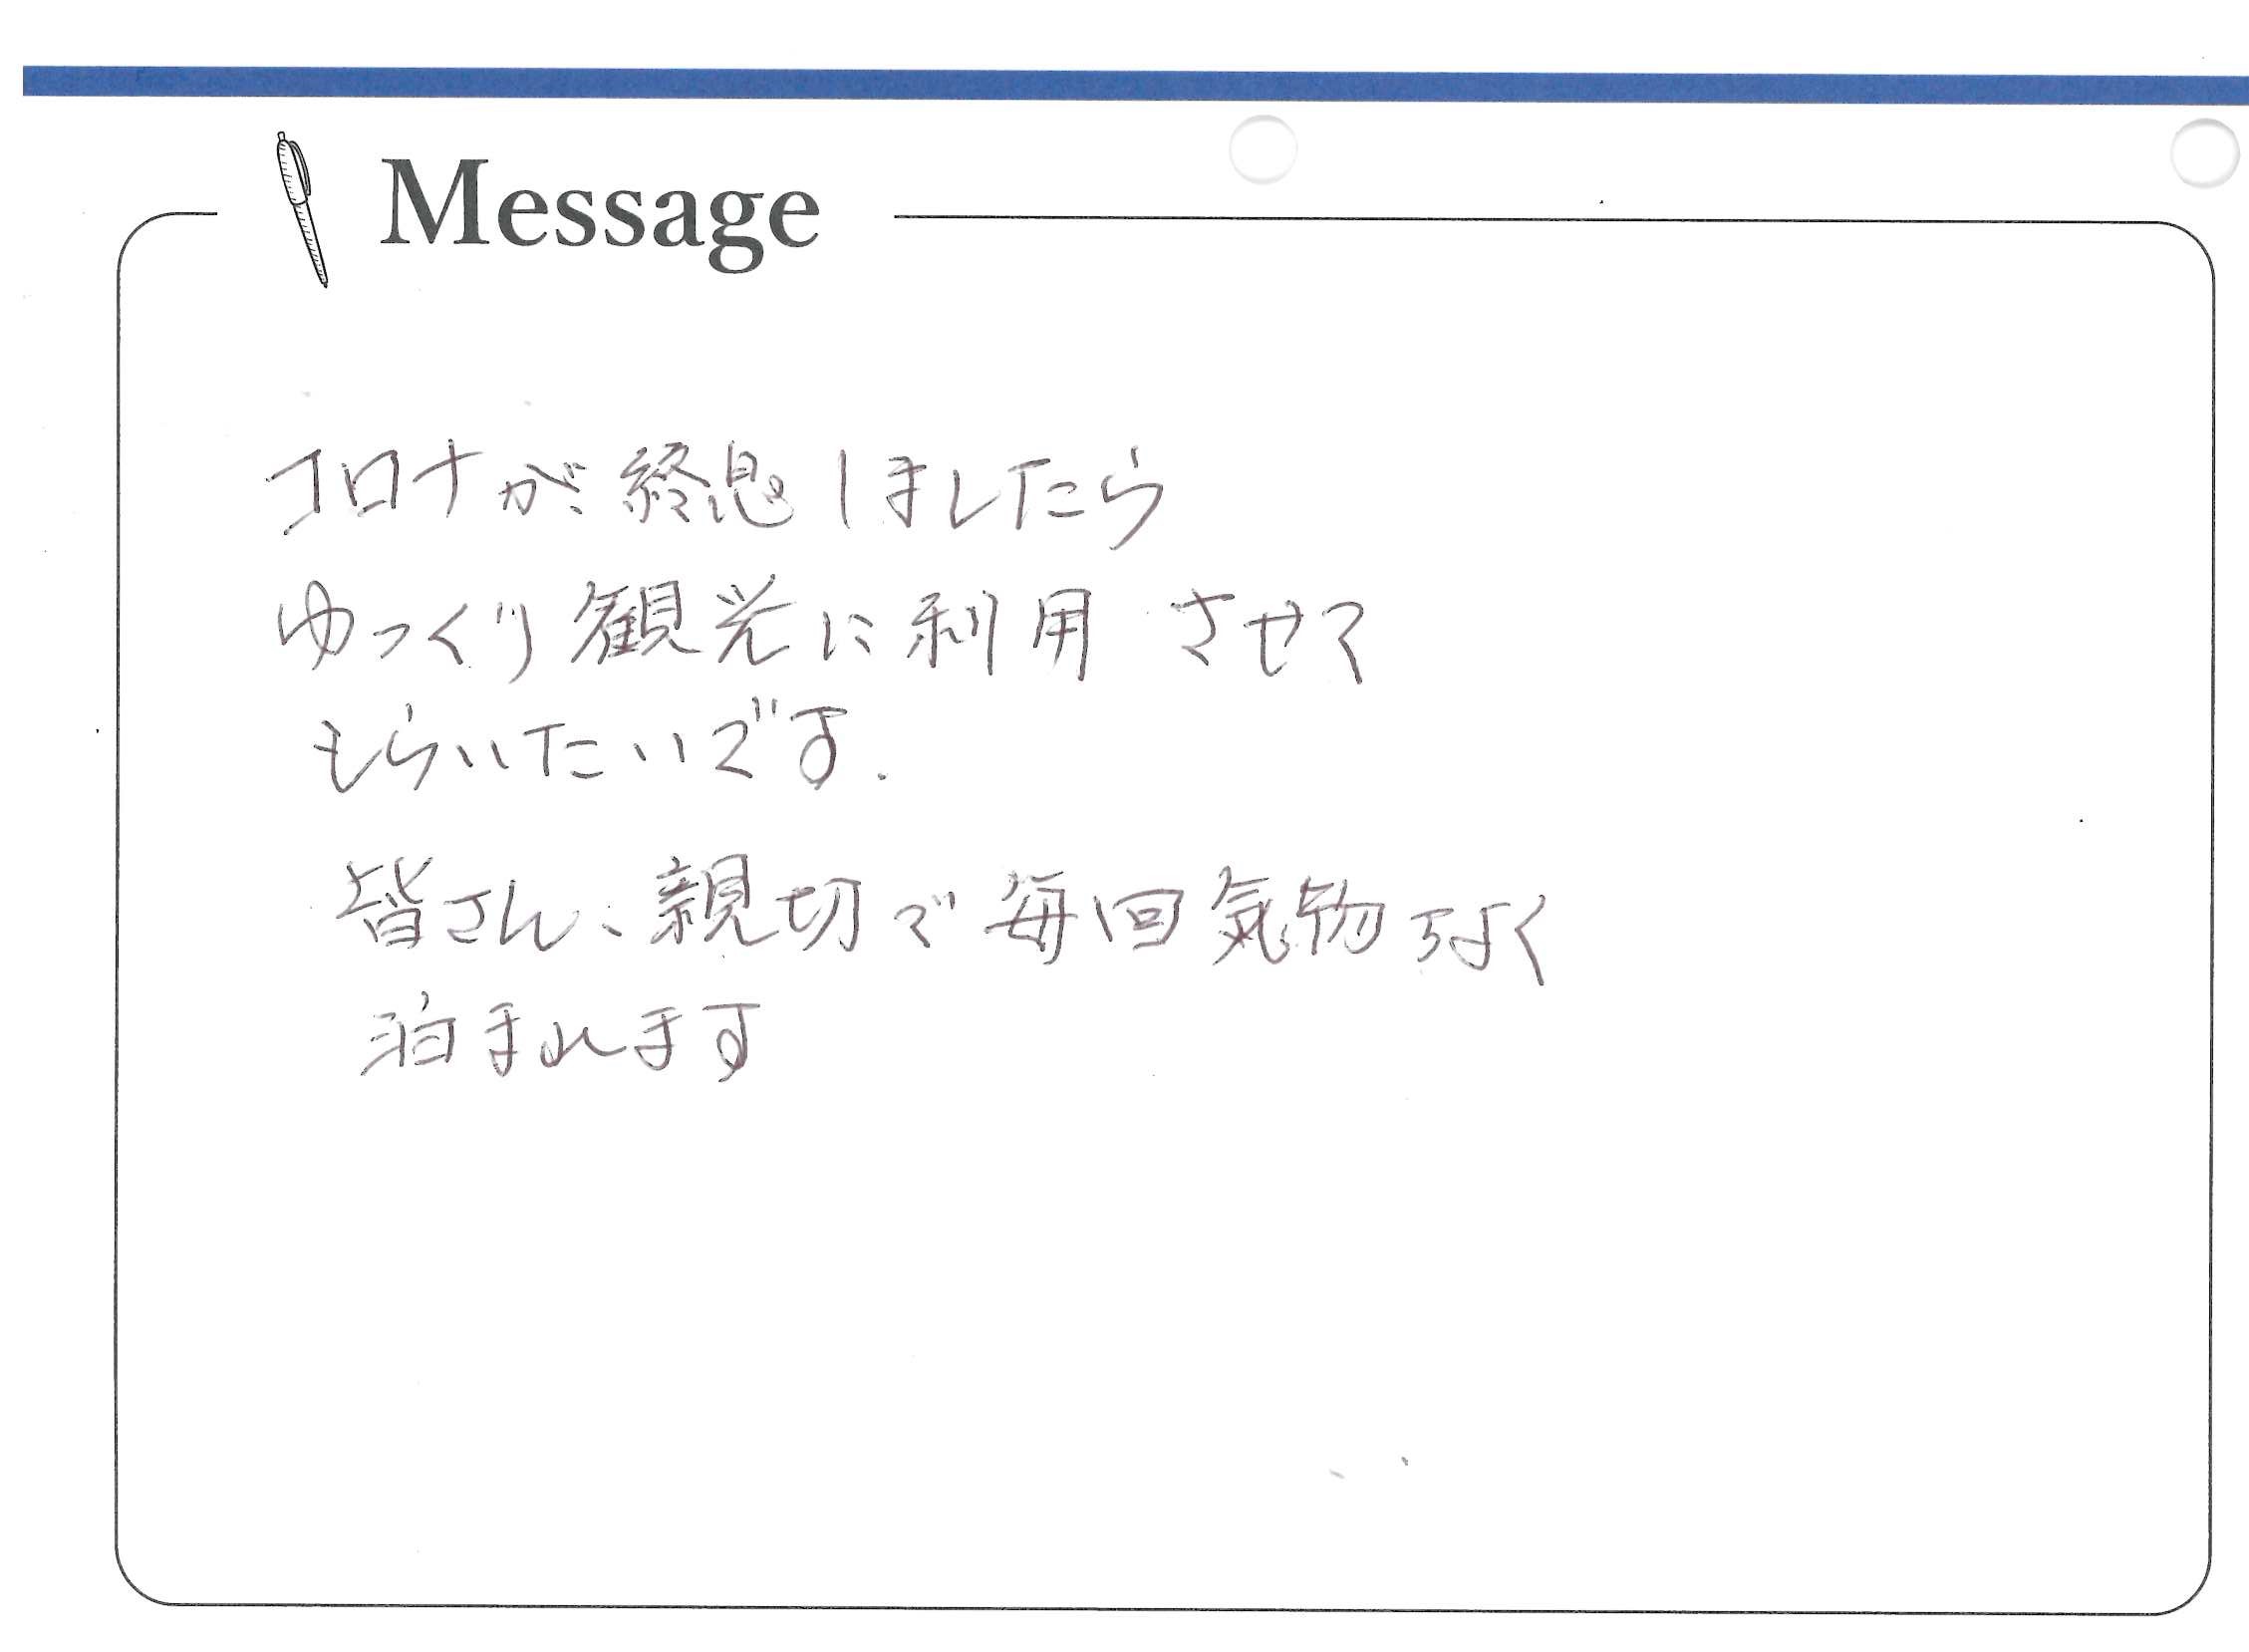 Message
コロナが終息しましたら
ゆっくり観光に利用させて
もらいたいです.
皆さん、親切で毎回気物よく
泊まれます